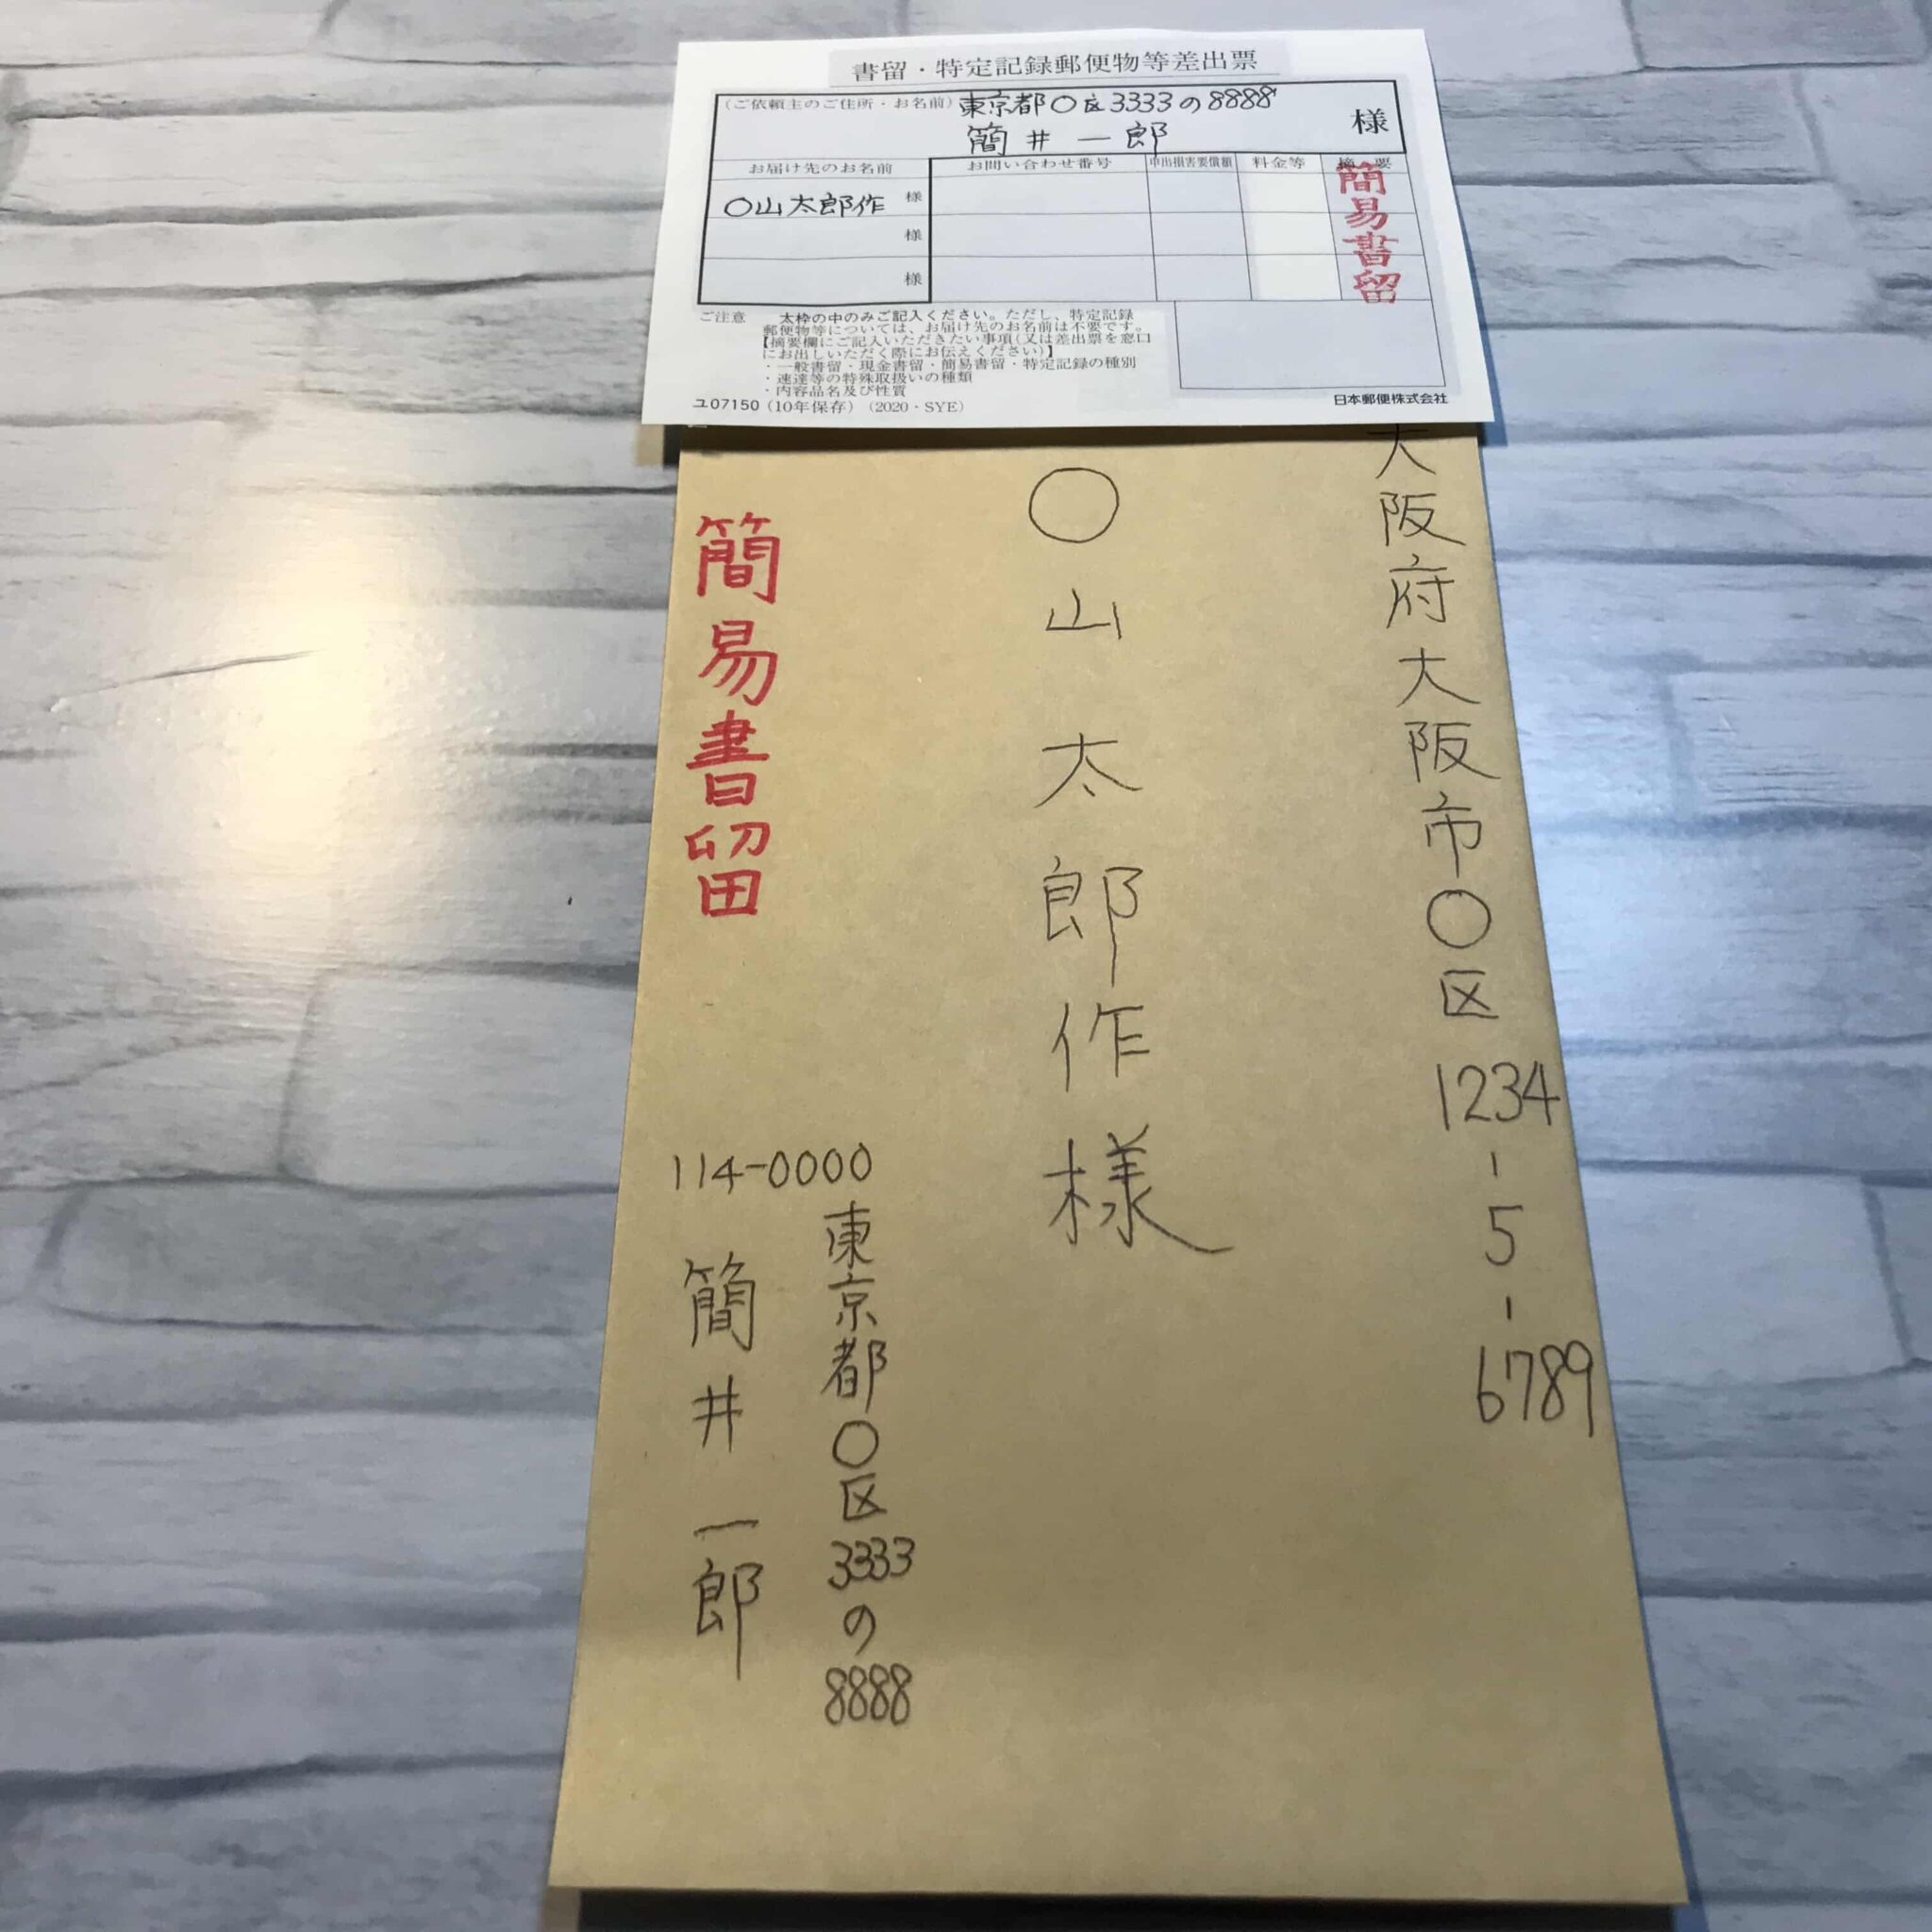 書留・特定記録郵便物等差出票
(ご依頼主のご住所・お名前) 東京都〇区3333の8888
簡井一郎 様
お届け先のお名前 お問い合わせ番号 申出損害要償額 料金等 摘要
〇山太郎作 様
様
様
簡易書留
ご注意 太枠の中のみご記入ください。ただし、特定記録
郵便物等については、お届け先のお名前は不要です。
【摘要欄にご記入いただきたい事項(又は差出票を窓口
にお出しいただく際にお伝えください)】
・一般書留・現金書留・簡易書留・特定記録の種別
・速達等の特殊取扱いの種類
・内容品名及び性質
ユ07150(10年保存)(2020・SYE)
日本郵便株式会社
大阪府大阪市〇区1234-5-6789
〇山太郎作様
簡易書留
114-0000
東京都〇区3333の8888
簡井一郎